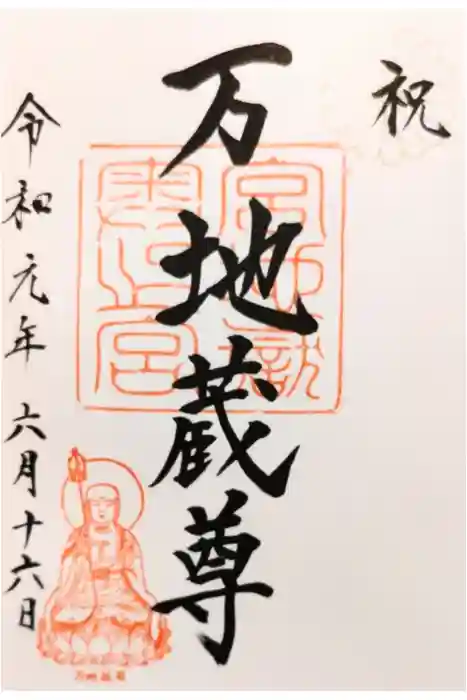 祝
万地蔵尊
令和元年六月十六日